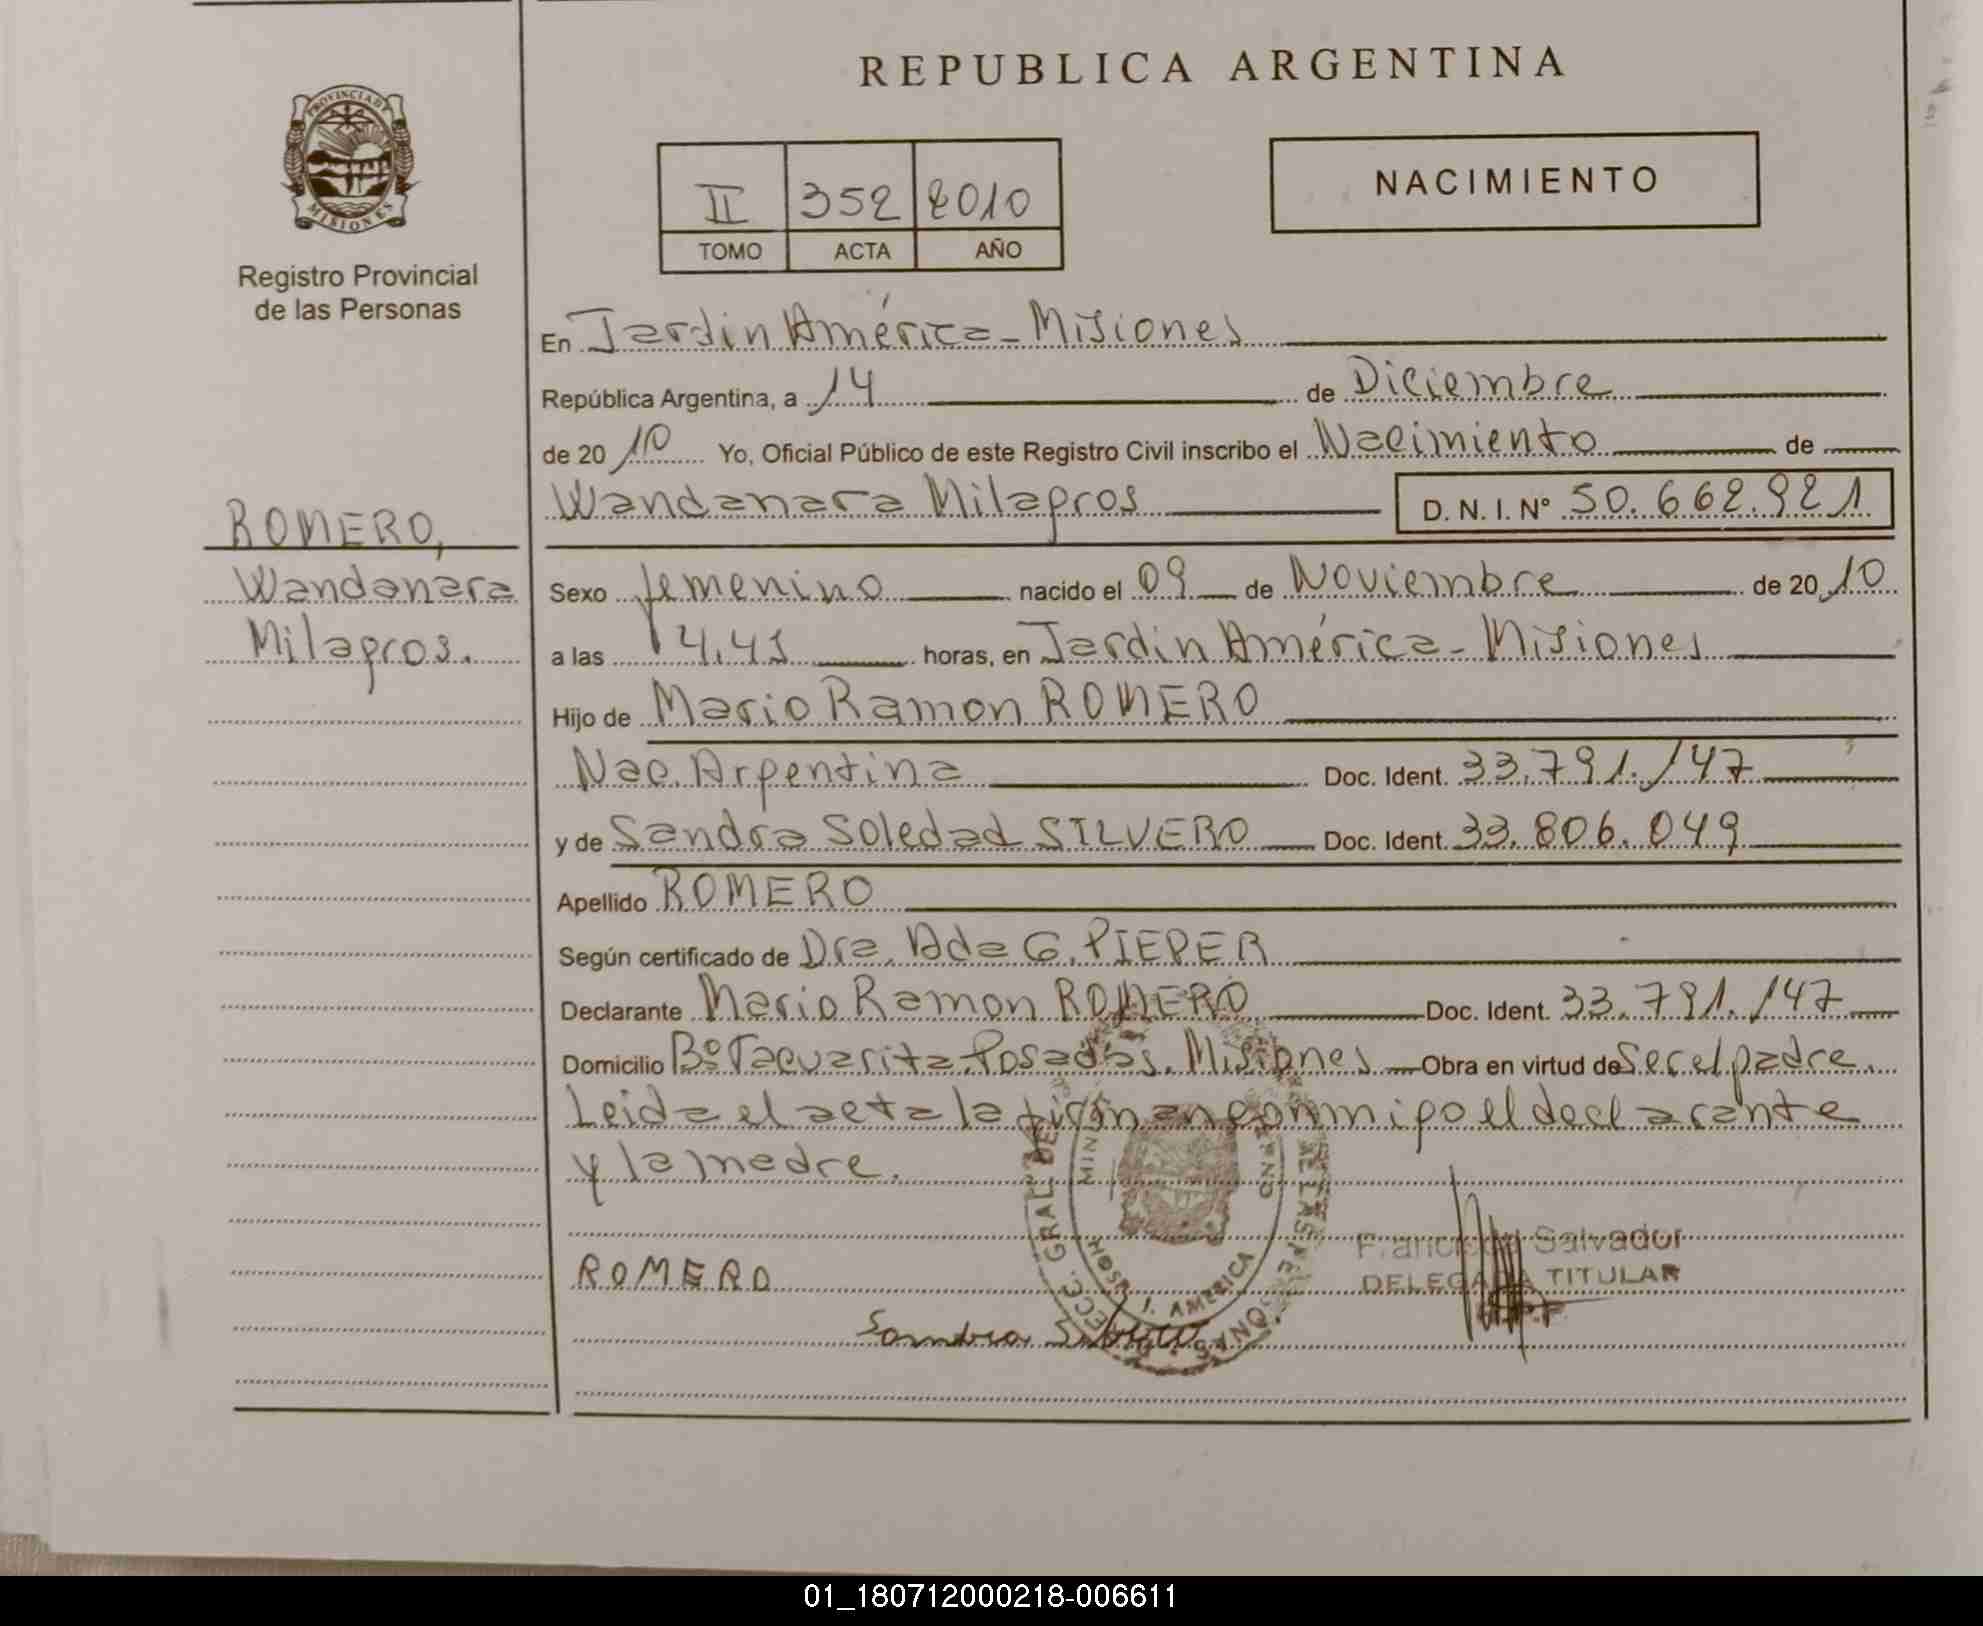 REPUBLICA ARGENTINA
PROVINCIA DE
MISIONES
Registro Provincial
de las Personas
II 352 2010
TOMO ACTA AÑO
NACIMIENTO
En Jardin América - Misiones
República Argentina, a 14 de Diciembre
de 20 10 Yo, Oficial Público de este Registro Civil inscribo el Nacimiento de
Wandanara Milagros D. N. I. Nº 50.662.921
ROMERO,
Wandanara
Milagros.
Sexo femenino nacido el 09 de Noviembre de 20 10
a las 14,45 horas, en Jardin América - Misiones
Hijo de Mario Ramon ROMERO
Nac. Argentina Doc. Ident. 33.791.147
y de Sandra Soledad SILVERO Doc. Ident. 33.806.049
Apellido ROMERO
Según certificado de Dra. Ada G. PIEPER
Declarante Mario Ramon ROMERO Doc. Ident. 33.791.147
Domicilio Bº Tacuarita. Posadas. Misiones Obra en virtud de Ser el padre.
Leida el acta la firman conmigo el declarante
y la madre.
Salvador
DELEGADA TITULAR
ROMERO
Sandra
J. AMERICA
01_180712000218-006611